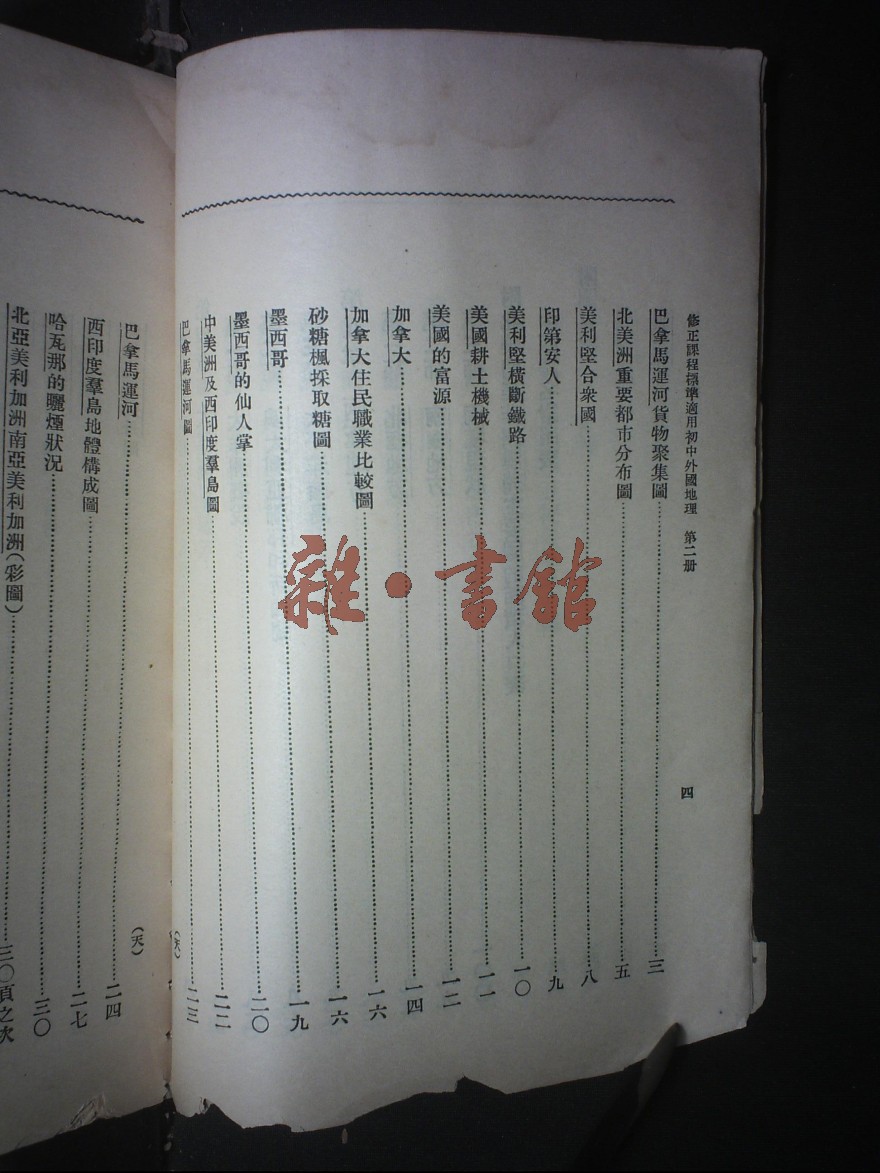 修正課程標準適用初中外國地理 第二册
四
巴拿馬運河貨物聚集圖……三
北美洲重要都市分布圖……五
美利堅合衆國……八
印第安人……九
美利堅橫斷鐵路……一〇
美國耕土機械……一一
美國的富源……一二
加拿大……一四
加拿大住民職業比較圖……一六
砂糖楓採取糖圖……一六
墨西哥……一九
墨西哥的仙人掌……二〇
中美洲及西印度羣島圖……二二
巴拿馬運河圖……二三
(天)
巴拿馬運河……二四
西印度羣島地體構成圖……二七
哈瓦那的曬煙狀況……三〇
北亞美利加洲南亞美利加洲(彩圖)……三〇頁之次
(天)
雜·書館